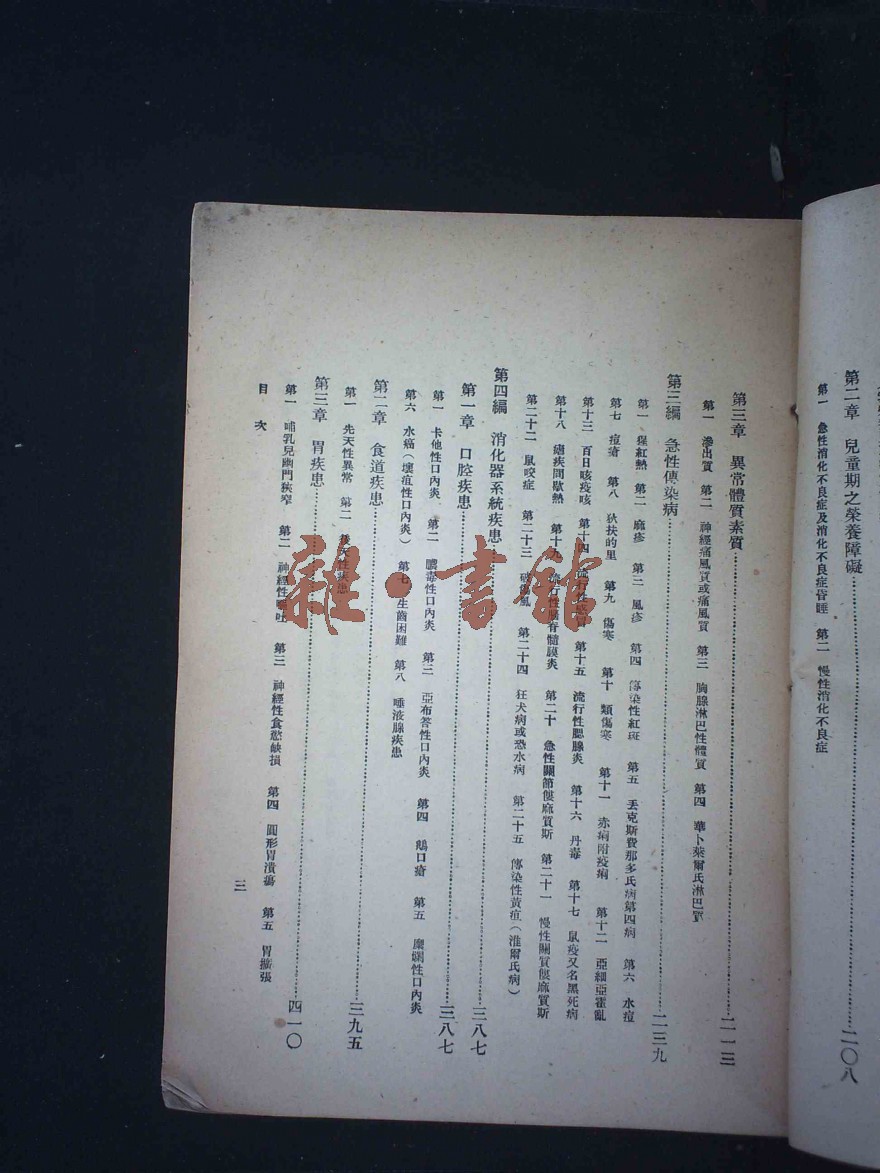 第二章　兒童期之榮養障礙…二〇八
第一　急性消化不良症及消化不良症昏睡　第二　慢性消化不良症
第三章　異常體質素質…二一三
第一　滲出質　第二　神經痛風質或痛風質　第三　胸腺淋巴性體質　第四　華卜萊爾氏淋巴質
第三編　急性傳染病…二三九
第一　猩紅熱　第二　麻疹　第三　風疹　第四　傳染性紅斑　第五　丟克斯費那多氏病第四病　第六　水痘
第七　痘瘡　第八　狄扶的里　第九　傷寒　第十　類傷寒　第十一　赤痢附疫痢　第十二　亞細亞霍亂
第十三　百日咳疫咳　第十四　流行性感冒　第十五　流行性腮腺炎　第十六　丹毒　第十七　鼠疫又名黑死病
第十八　瘧疾間歇熱　第十九　流行性腦脊髓膜炎　第二十　急性關節僂麻質斯　第二十一　慢性關質僂麻質斯
第二十二　鼠咬症　第二十三　破傷風　第二十四　狂犬病或恐水病　第二十五　傳染性黃疸（淮爾氏病）
第四編　消化器系統疾患…三八七
第一章　口腔疾患…三八七
第一　卡他性口內炎　第二　膿毒性口內炎　第三　亞布答性口內炎　第四　鵝口瘡　第五　糜爛性口內炎
第六　水癌（壞疽性口內炎）　第七　生齒困難　第八　唾液腺疾患
第二章　食道疾患…三九五
第一　先天性異常　第二　後天性疾患
第三章　胃疾患…四一〇
第一　哺乳兒幽門狹窄　第二　神經性嘔吐　第三　神經性食慾缺損　第四　圓形胃潰瘍　第五　胃擴張
目次
三
雜·書館